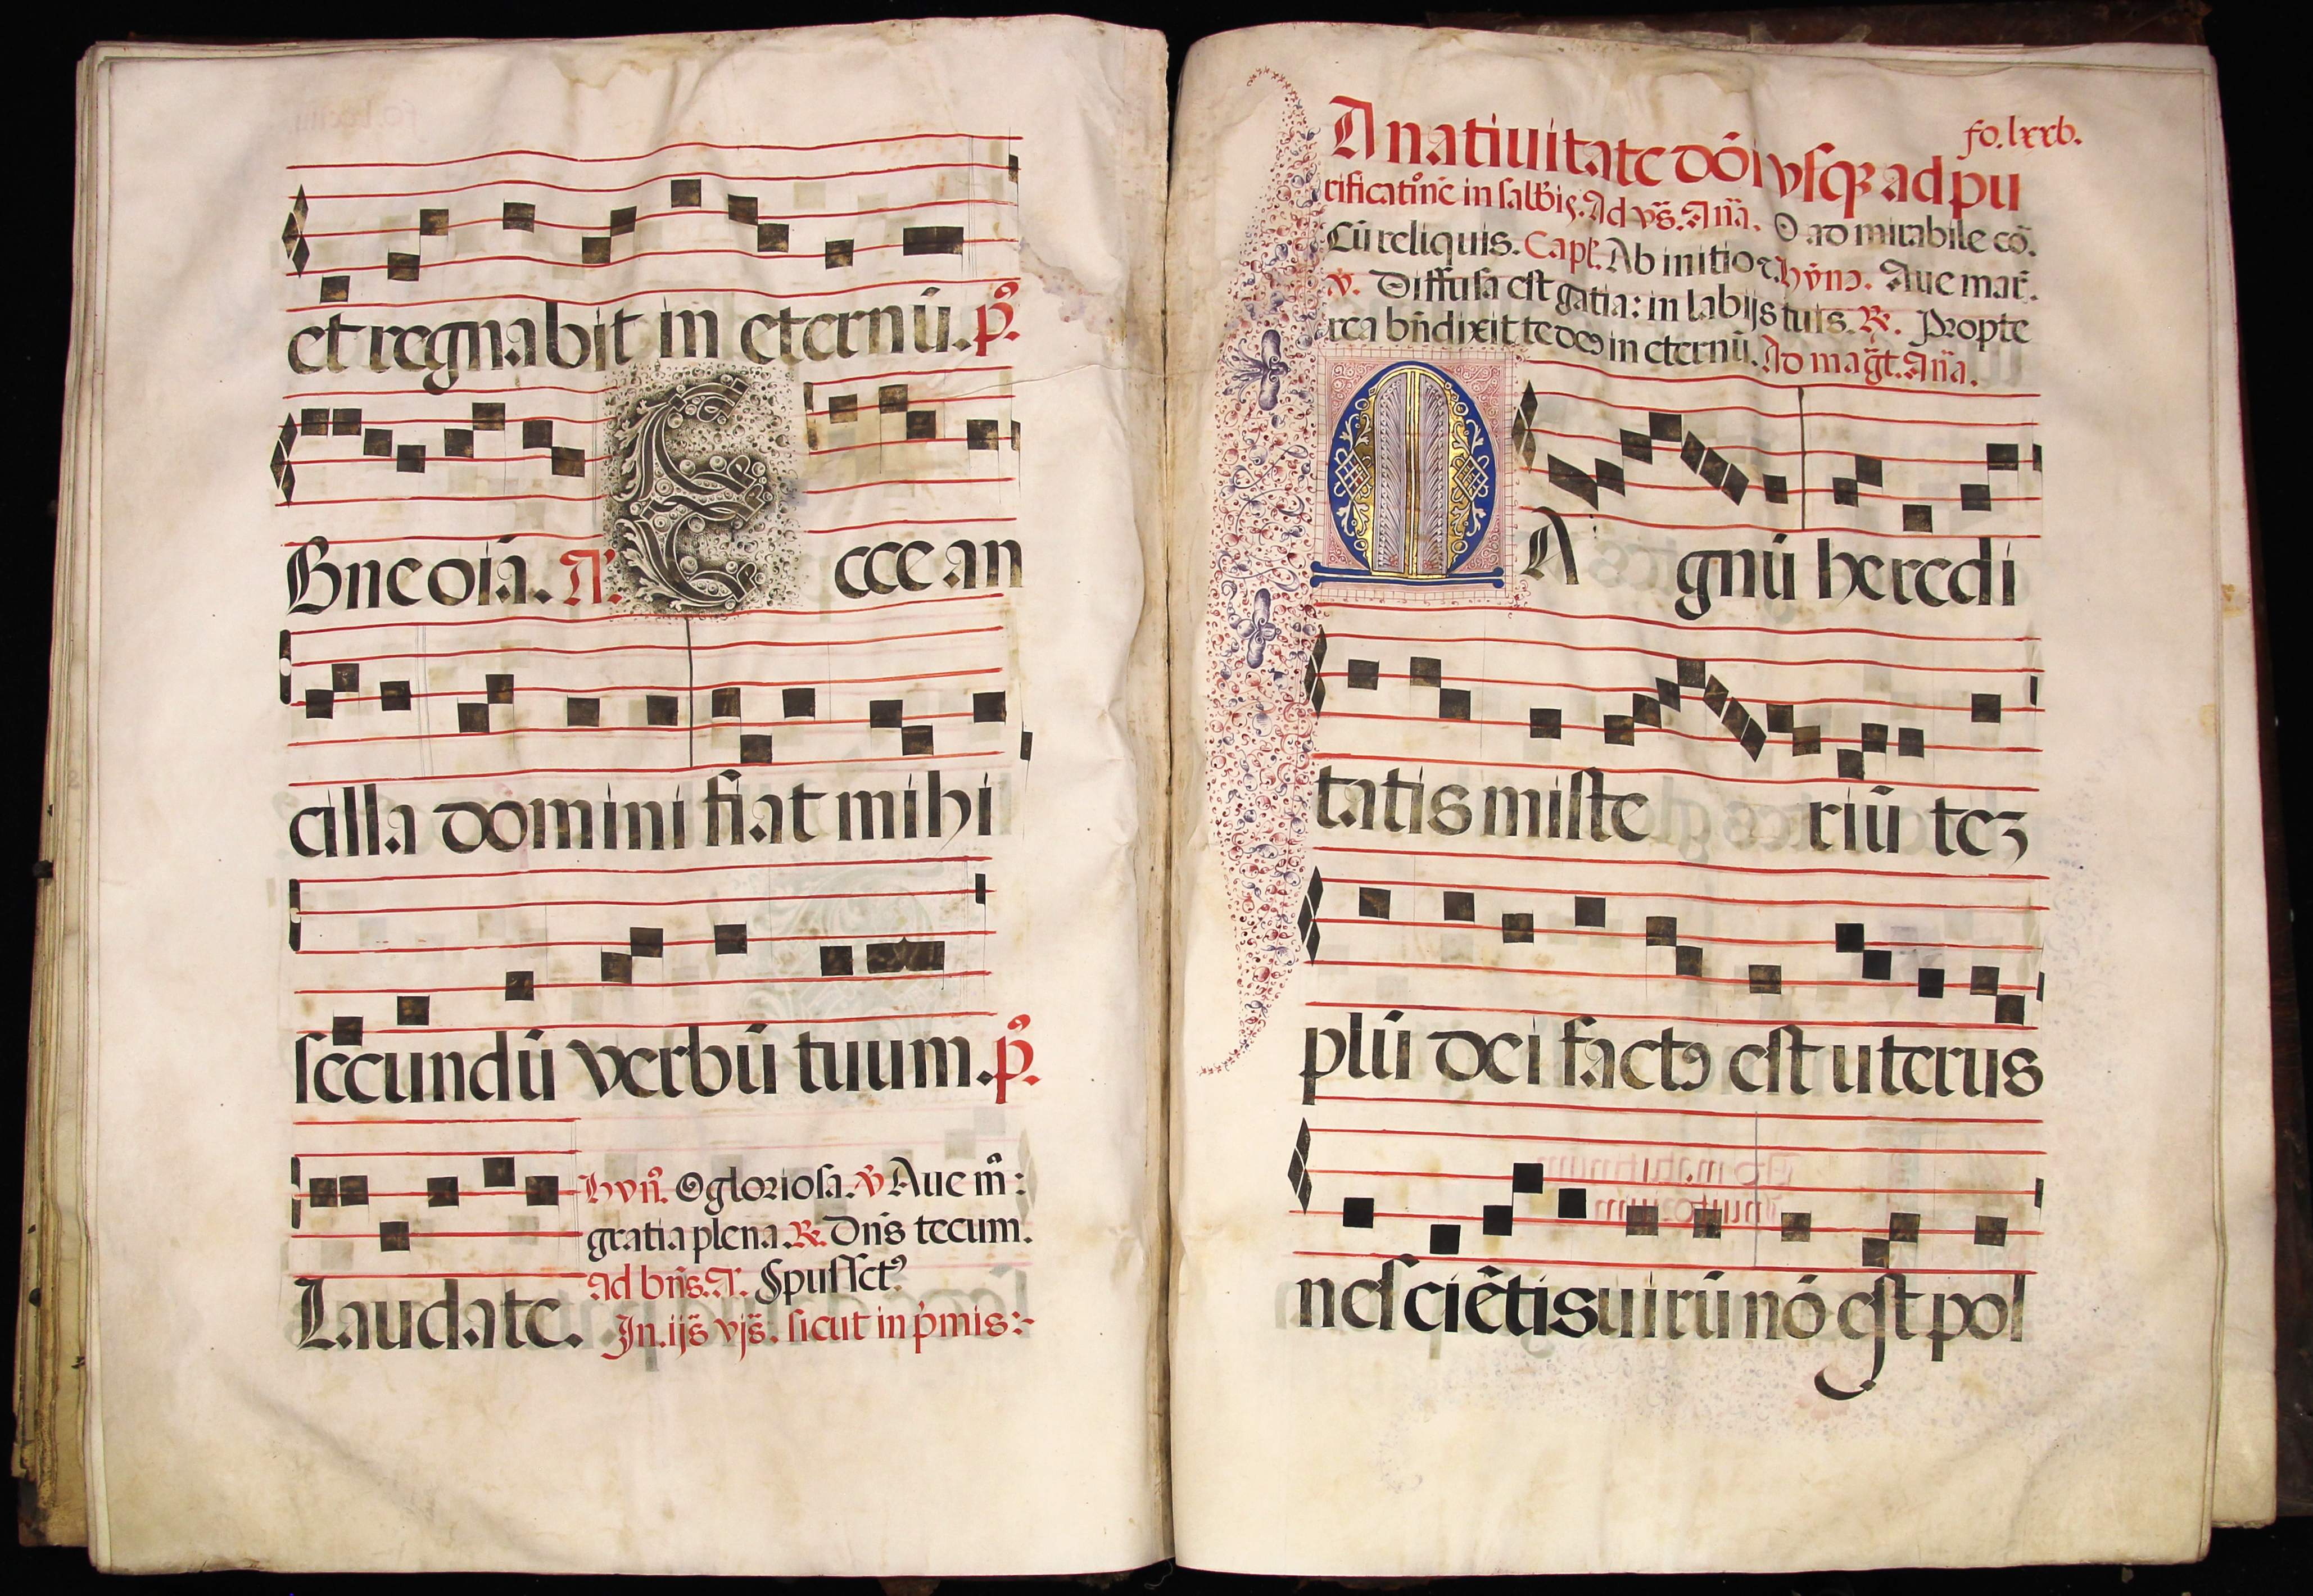 et regnabit in eternū. p̊.
Bn̄e oīa. A. Ecce an
cilla domini fiat mihi
secundū verbū tuum. p̊.
Hyn̄. O gloriosa. ꝟ Aue m̄:
gratia plena. ℞. Dn̄s tecum.
Ad bn̄s. A. Spūs sctꝰ
Laudate. In .ijs̄ vjs̄. sicut in pͥmis:-
fo. lxxb.
A natiuitate dōi vsqꝫ ad pu
rificatiōnē in salb̄is. Ad vs̄. An̄a. O ad mirabile cō.
Cū reliquis. Capl̄. Ab initio ⁊. hȳnɔ. Aue mar̄.
ꝟ. Diffusa est gatia: in labijs tuis. ℞. Propte
rea bn̄dixit te deꝰ in eternū. Ad mag̃t. An̄a.
MA gnū heredi
tatis miste riū teꝫ
plū dei factꝰ est uterus
nesciētis uirū nō est pol